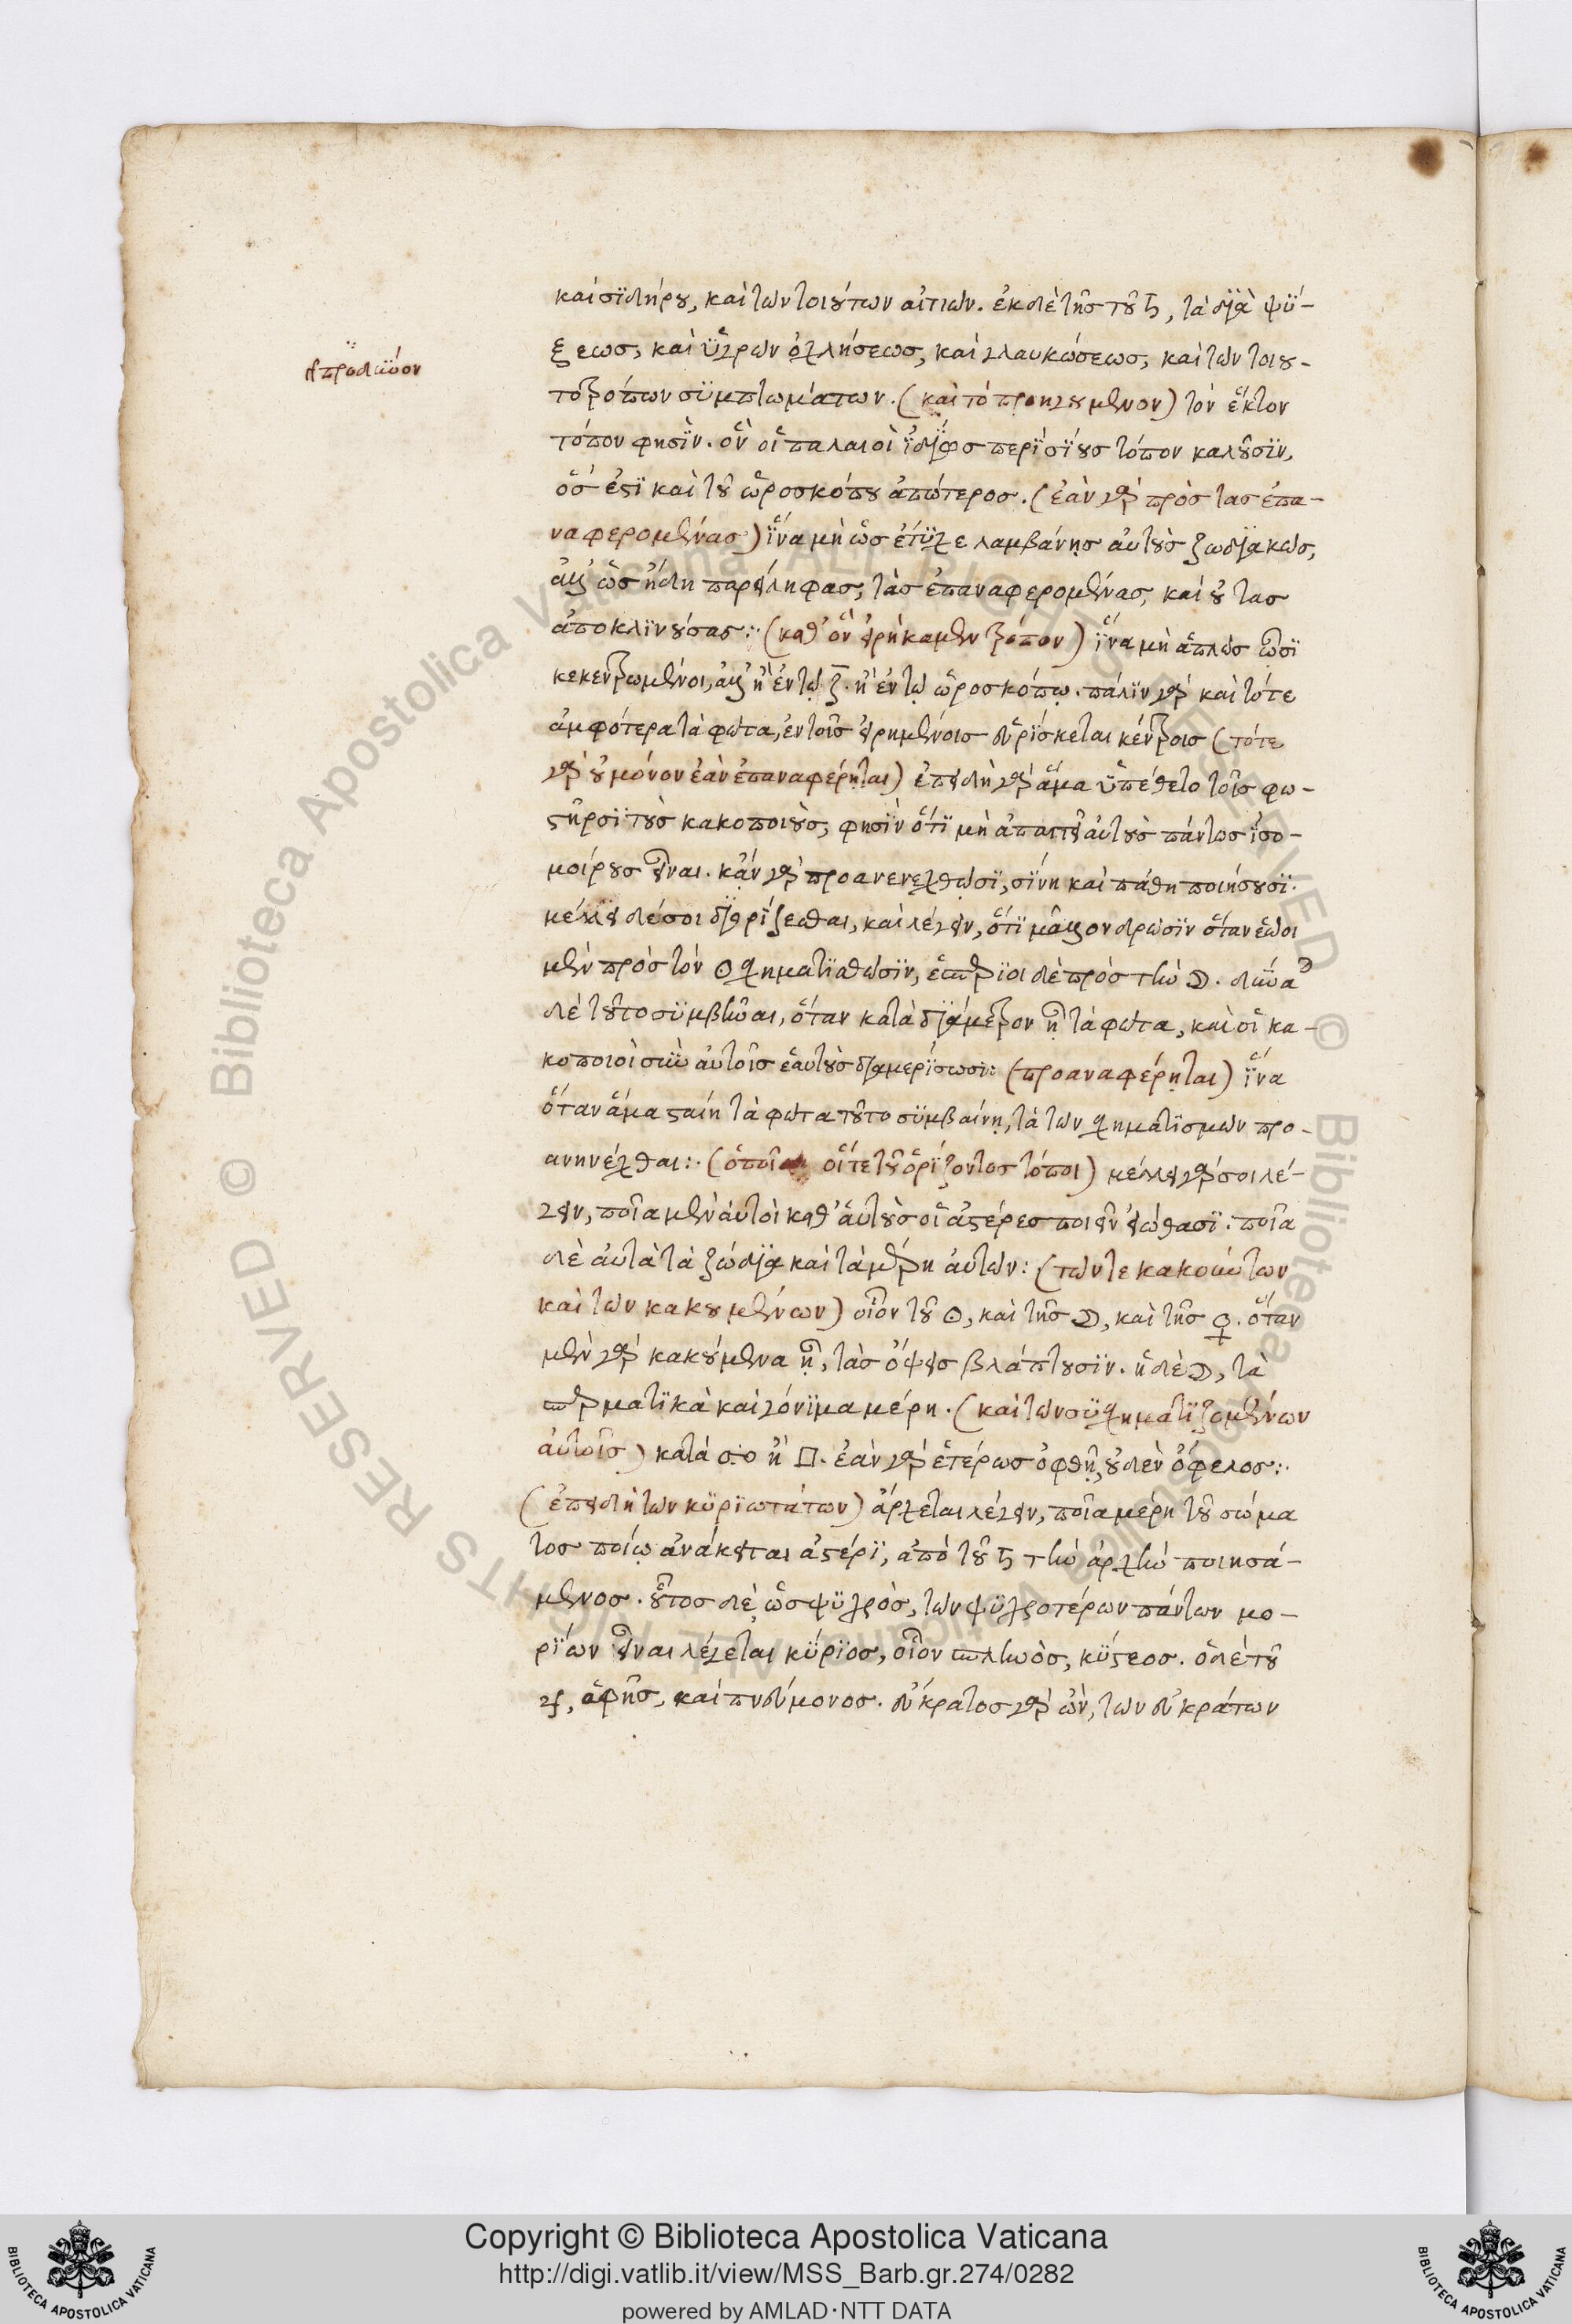 καὶ σϊδήρου, καὶ τῶν τοιούτων αἰτιῶν. ἐκ δὲ τῆς τοῦ ♄, τὰ διὰ ψύ-
ξεως, καὶ ὑγρῶν ὀχλήσεως, καὶ γλαυκώσεως, καὶ τῶν τοιου-
τοτρόπων συμπτωμάτων. (καὶ τὸ προηγούμενον) τὸν ἕκτον
τόπον φησὶν. ὃν οἱ παλαιοὶ τόπον καλοῦσιν,
ὅς ἐστι καὶ τοῦ ὡροσκόπου ἀπώτερος. (ἐὰν γὰρ πρὸς τας ἐπα-
ναφερομένας) ἵνα μὴ ὡς ἔτυχε λαμβάνῃς αὐτοὺς ζωδιακῶς,
ἀλλ' ὡς ἤδη παρείληφας, τὰς ἐπαναφερομένας, καὶ οὐ τας
ἀποκλινούσας: (καθ' ὃν εἰρήκαμεν τρόπον) ἵνα μὴ ἁπλῶς ὦσι
κεκεντρωμένοι, ἀλλ' ἢ ἐν τῷ ζ. ἢ ἐν τῷ ὡροσκόπῳ. πάλιν γὰρ καὶ τότε
ἀμφότερα τὰ φῶτα, ἐν τοῖς εἰρημένοις εὑρίσκεται κέντροις (τότε
γὰρ οὐ μόνον ἐὰν ἐπαναφέρηται) ἐπειδὴ γὰρ ἅμα ὑπέθετο τοῖς φω-
στῆρσι τοὺς κακοποιοὺς, φησὶν ὅτι μὴ ἀπαιτεῖ αὐτοὺς πάντως ἰσο-
μοίρους εἶναι. κἂν γὰρ προανενεχθῶσι, σίνη καὶ πάθη ποιήσουσι.
μέλλει δέ σοι διορίζεσθαι, καὶ λέγειν, ὅτι μᾶλλον δρῶσιν ὅταν ἑῷοι
μὲν πρὸς τὸν ☉ σχηματισθῶσιν, ἑσπέριοι δὲ πρὸς τὴν ☽. δυνατὸν
δὲ τοῦτο συμβῆναι, ὅταν κατὰ διάμετρον ᾖ τὰ φῶτα, καὶ οἱ κα-
κοποιοὶ σὺν αὐτοῖς ἑαυτοὺς διαμερίσωσι: (προαναφέρηται) ἵνα
ὅταν ἅμα σταίη τὰ φῶτα τοῦτο συμβαίνῃ, τὰ τῶν σχηματισμῶν προ-
ανηνέχθαι: (ὁποῖαι οἵ τε τοῦ ὁρίζοντος τόποι) μέλλει γάρ σοι λέ-
γειν, ποῖα μὲν αὐτοὶ καθ' αὑτοὺς οἱ ἀστέρες ποιεῖν εἰώθασι: ποῖα
δὲ αὐτὰ τὰ ζώδια καὶ τὰ μέρη αὐτῶν: (τῶν τε κακούντων
καὶ τῶν κακουμένων) οἷον τοῦ ☉, καὶ τῆς ☽, καὶ τῆς ♀. ὅταν
μὲν γὰρ κακούμενα ᾖ, τὰς ὄψεις βλάπτουσιν. ἡ δὲ ☽, τὰ
σπερματικὰ καὶ γόνιμα μέρη. (καὶ τῶν συσχηματιζομένων
αὐτοῖς) κατὰ σύνοδον ἢ □. ἐὰν γὰρ ἑτέρως ὀφθῇ, οὐδὲν ὄφελος:
(ἐπειδὴ τῶν κυριωτάτων) ἄρχεται λέγειν, ποῖα μέρη τοῦ σώμα
τος ποίῳ ἀνάκειται ἀστέρι, ἀπὸ τοῦ ♄ τὴν ἀρχὴν ποιησά-
μενος. οὗτος δὲ, ὡς ψυχρὸς, τῶν ψυχροτέρων πάντων μο-
ρίων εἶναι λέγεται κύριος, οἷον σπληνὸς, κύστεος. ὁ δὲ τοῦ
♃, ἁφῆς, καὶ πνεύμονος. εὔκρατος γὰρ ὢν, τῶν εὐκράτων